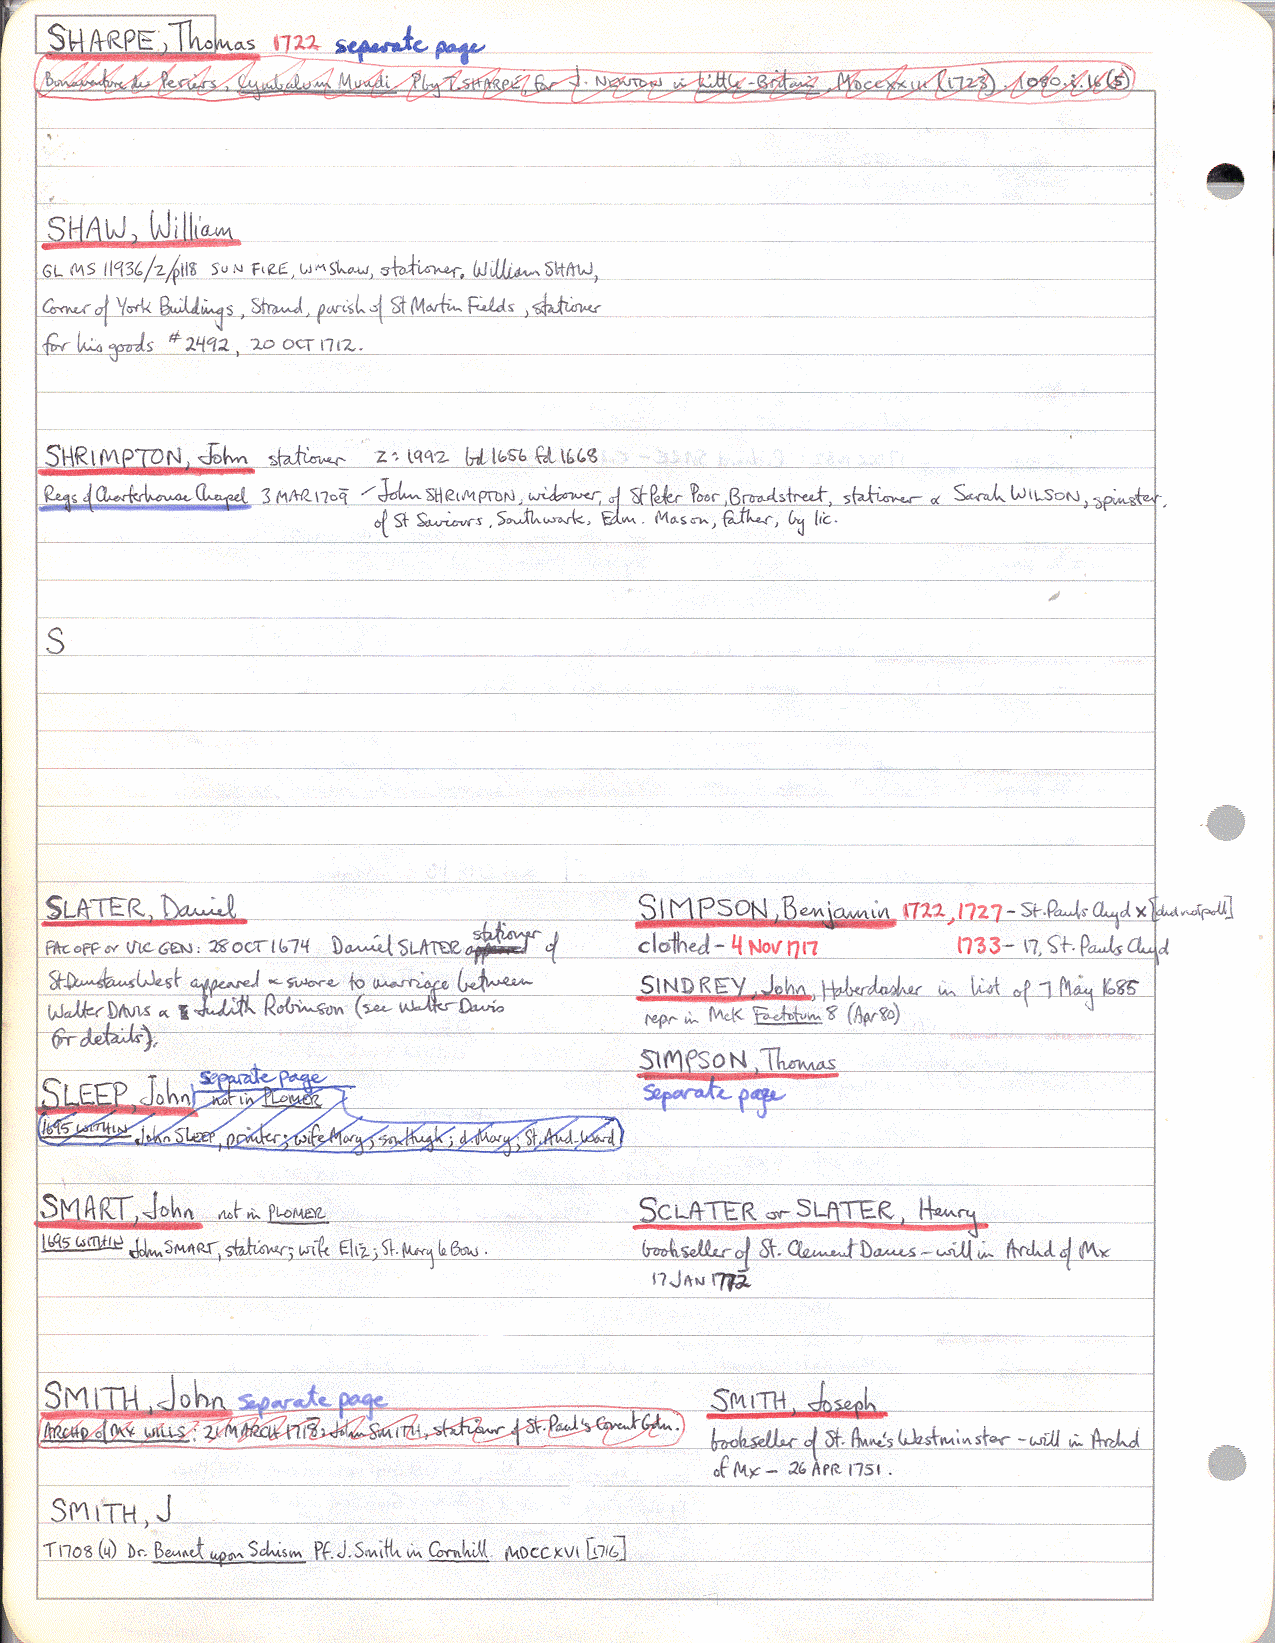 SHARPE, Thomas 1722 separate page
Bonaventure des Periers, Cymbalum Mundi P by T. SHARPE, for J. NEWTON in Little-Britain, MDCCXXIII (1723). 1080.i.16 (5)
SHAW, William
GL MS 11936/2/p118 SUN FIRE, Wm Shaw, stationer. William SHAW,
Corner of York Buildings, Strand, parish of St Martin Fields, stationer
for his goods # 2492, 20 OCT 1712.
SHRIMPTON, John stationer Z: 1992 bd 1656 fd 1668
Regs of Charterhouse Chapel 3 MAR 1709 - John SHRIMPTON, widower, of St Peter Poor, Broadstreet, stationer & Sarah WILSON, spinster,
of St Saviours, Southwark, Edm. Mason, father, by lic.
S
SLATER, Daniel
FAC OFF or VIC GEN: 28 OCT 1674 Daniel SLATER stationer of
St Dunstans West appeared & swore to marriage between
Walter DAVIS & Judith Robinson (see Walter Davis
for details).
SIMPSON, Benjamin 1722, 1727 - St. Pauls Chyd x [did not poll]
clothed - 4 NOV 1717 1733 - 17, St. Pauls Chyd
SINDREY, John, Haberdasher in list of 7 May 1685
repr in McK Factotum 8 (Apr 80)
SIMPSON, Thomas
separate page
SLEEP, John separate page
not in PLOMER
1695 WITHIN John SLEEP, printer; wife Mary; son Hugh; d. Mary; St. And. Ward
SMART, John not in PLOMER
1695 WITHIN John SMART, stationer; wife Eliz; St. Mary le Bow.
SCLATER or SLATER, Henry
bookseller of St. Clement Danes - will in Archd of Mx
17 JAN
SMITH, John separate page
ARCHD of MX WILLS: 21 MARCH 1718: John SMITH, stationer of St. Paul's Covent Gdn.
SMITH, Joseph
bookseller of St. Anne's Westminster - will in Archd
of Mx - 26 APR 1751.
SMITH, J
T1708 (4) Dr. Bennet upon Schism Pf. J. Smith in Cornhill. MDCCXVI [1716]